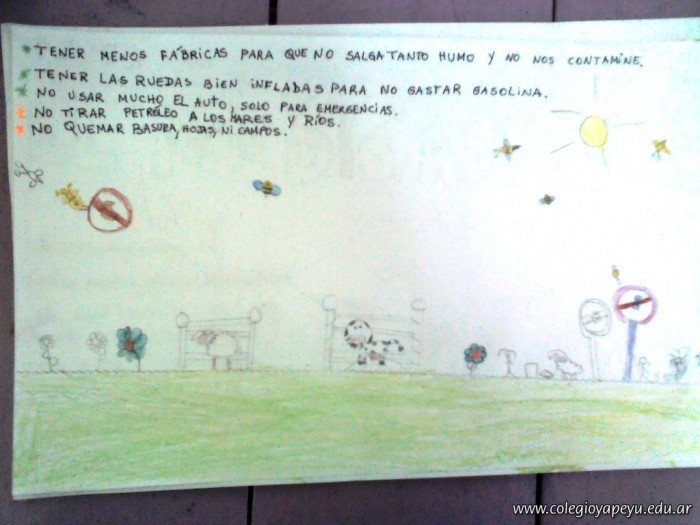 * TENER MENOS FÁBRICAS PARA QUE NO SALGA TANTO HUMO Y NO NOS CONTAMINE.
* TENER LAS RUEDAS BIEN INFLADAS PARA NO GASTAR GASOLINA.
* NO USAR MUCHO EL AUTO, SOLO PARA EMERGENCIAS.
* NO TIRAR PETRÓLEO A LOS MARES Y RÍOS.
* NO QUEMAR BASURA, HOJAS, NI CAMPOS.
www.colegioyapeyu.edu.ar